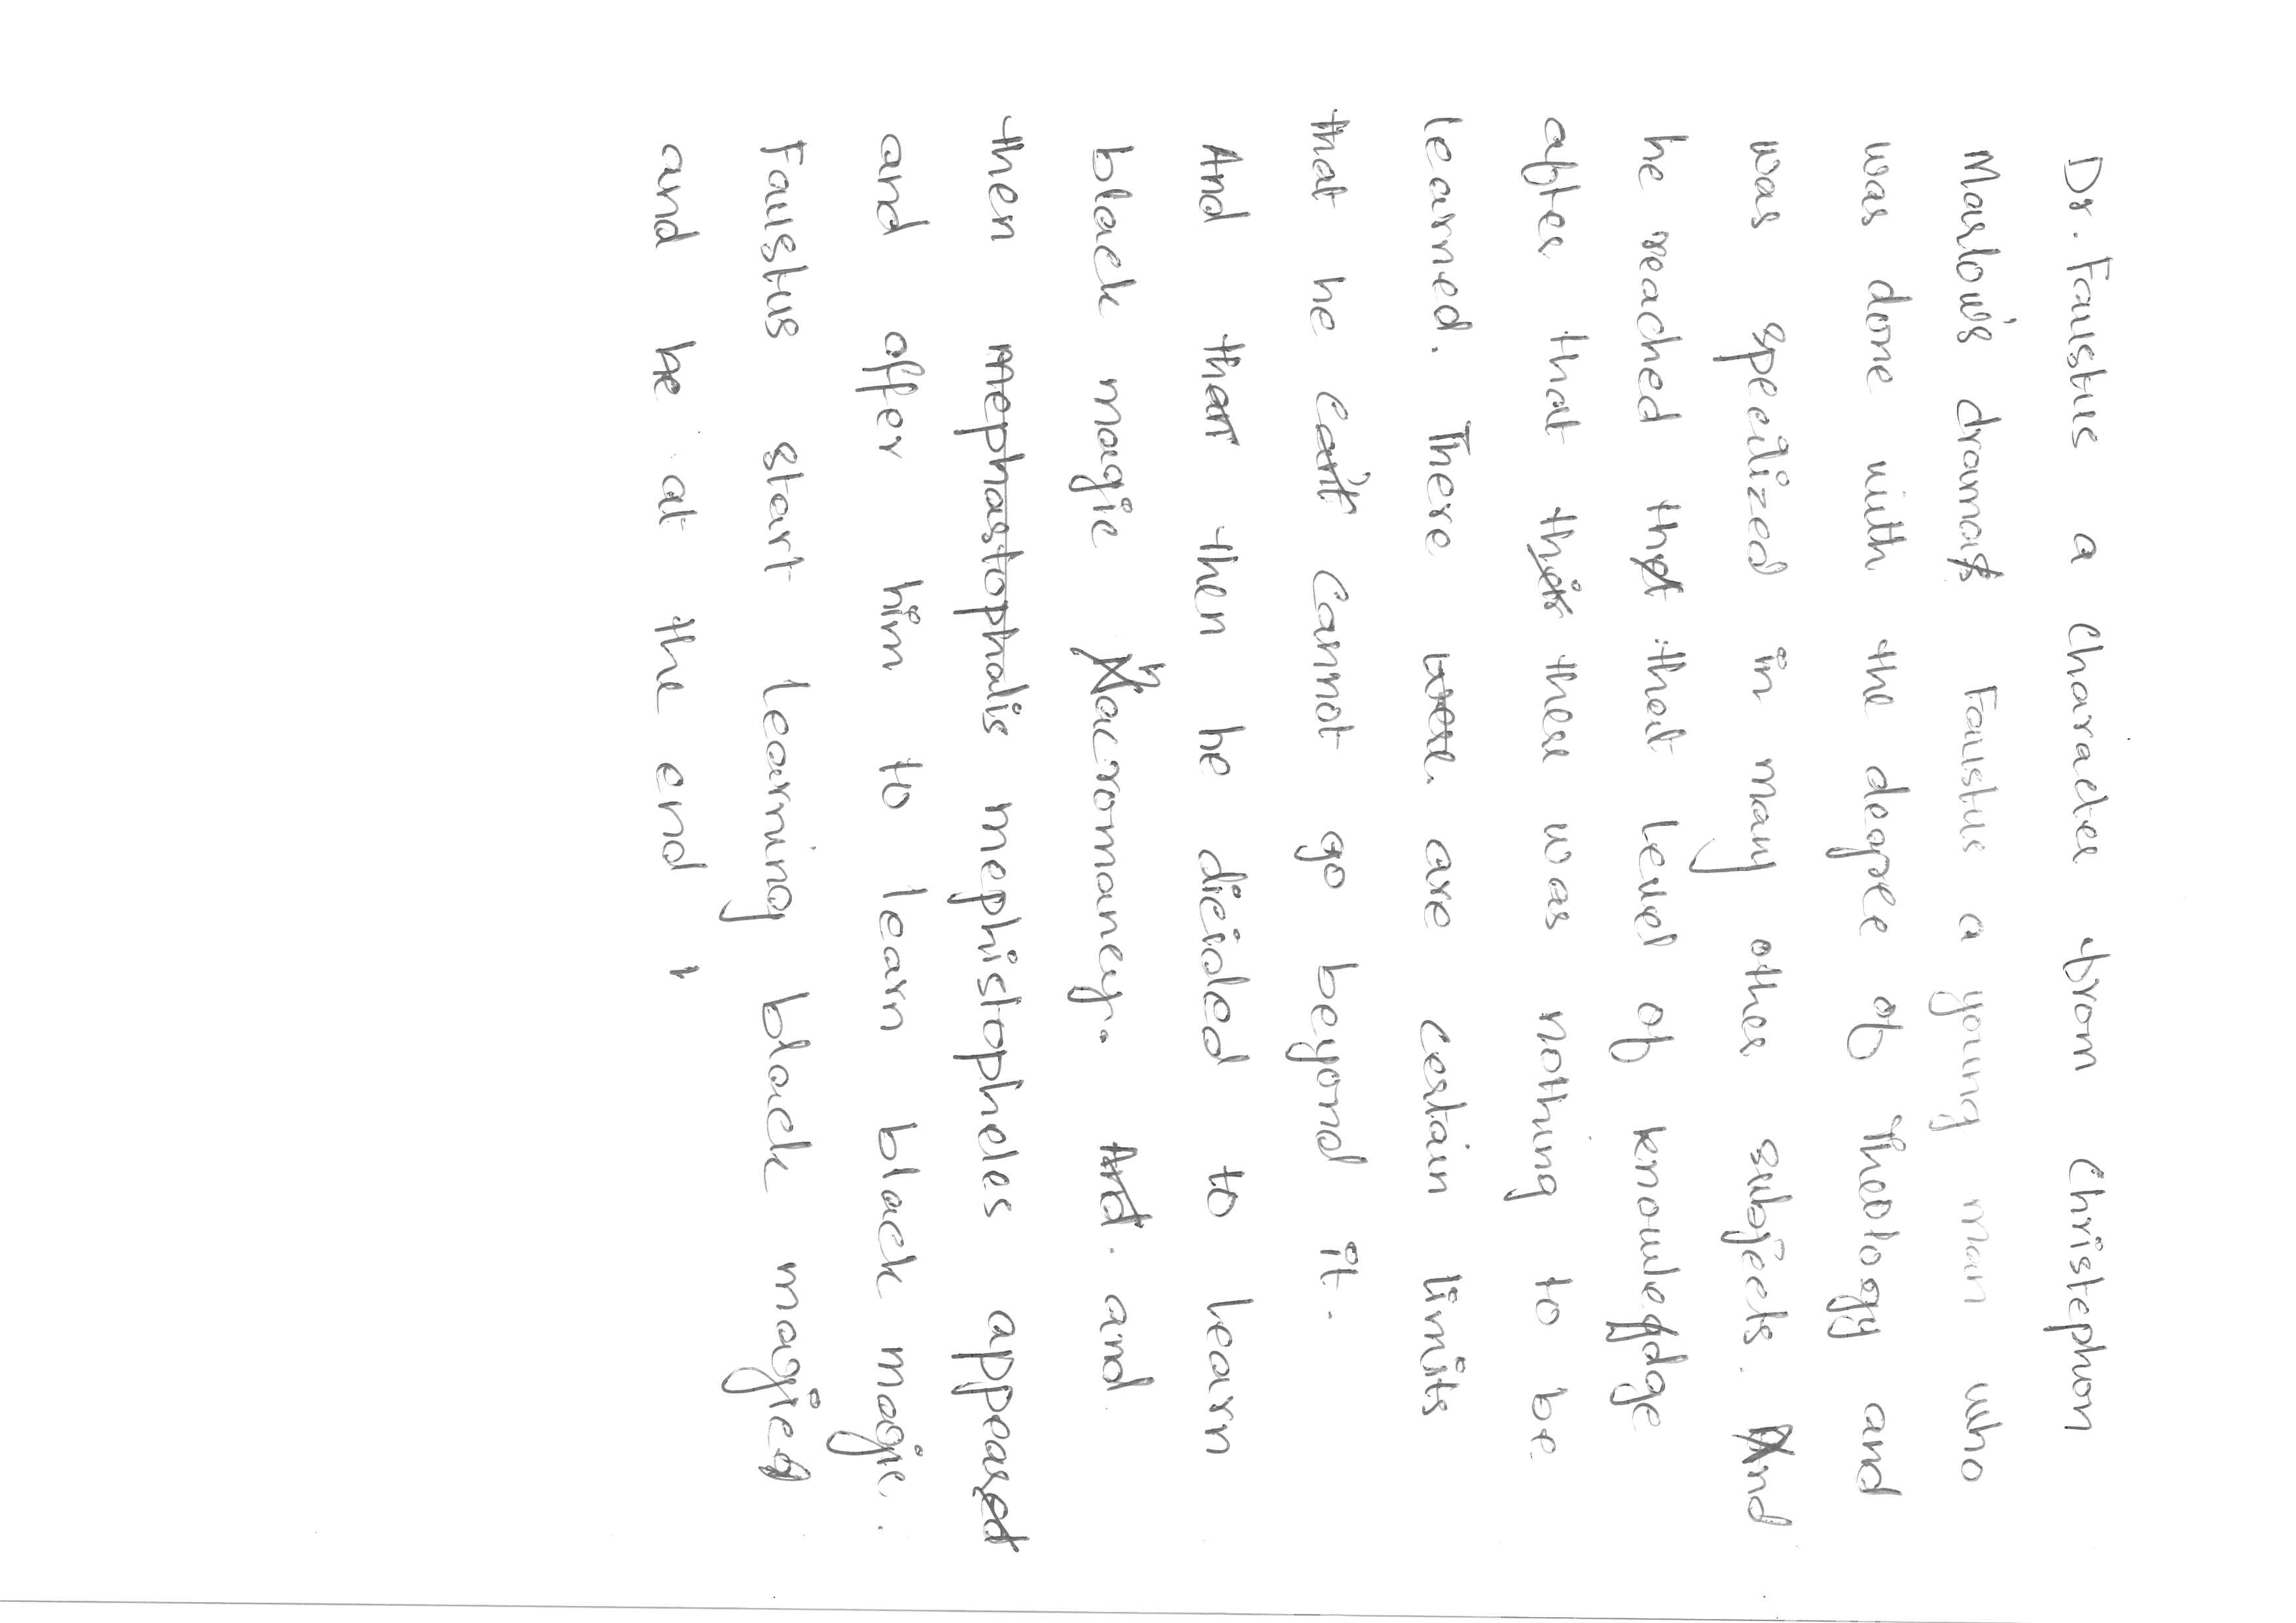 Dr. Faustus a character from Christephon
Marlow's drama Faustus a young man who
was done with the degree of Theology and
was specilized in many other subjects. And
he reached that that level of knowledge
after that their there was nothing to be
learned. There were. are certain limits
that he can't cannot go beyond it.
And than then he dicided to learn
black magic nacromancy. And. and
then mephastophalis mephistopheles appeared
and offer him to learn black magic.
Faustus start learning black magic
and he at the end